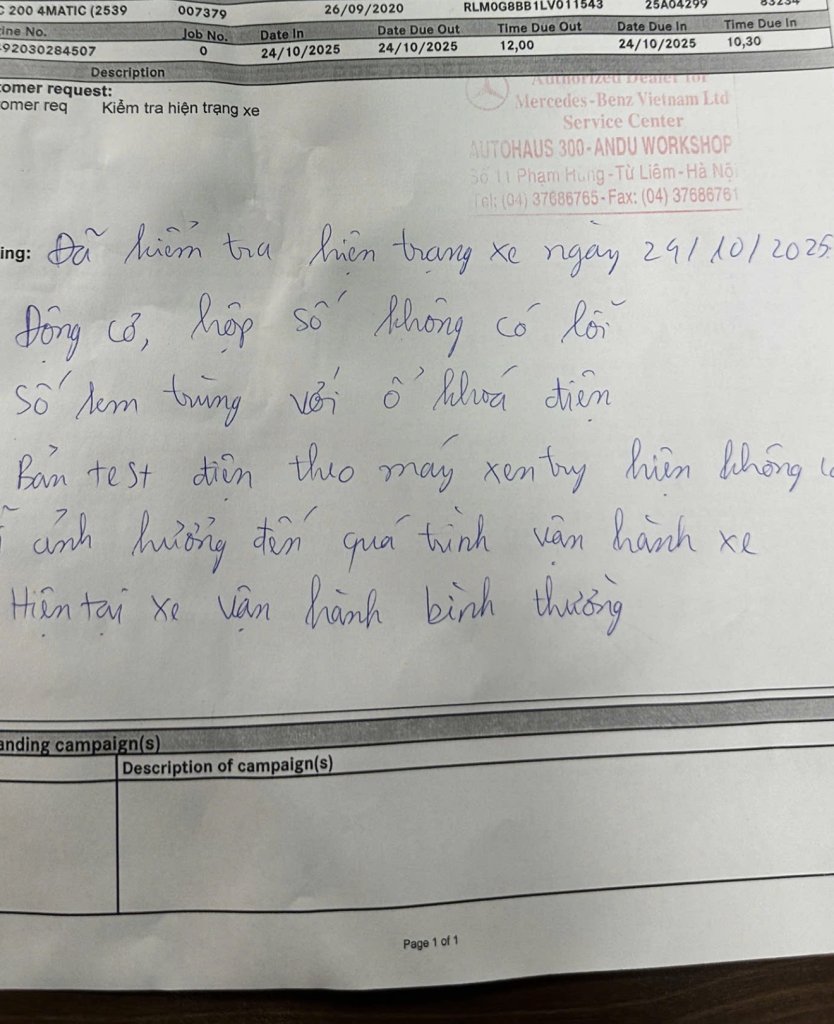 C 200 4MATIC (2539 007379 26/09/2020 RLM0G8BB1LV011543 25A04299 83234
ine No. Job No. Date In Date Due Out Time Due Out Date Due In Time Due In
92030284507 0 24/10/2025 24/10/2025 12,00 24/10/2025 10,30
Description
omer request:
omer req Kiểm tra hiện trạng xe
Authorized Dealer for
Mercedes-Benz Vietnam Ltd
Service Center
AUTOHAUS 300-ANDU WORKSHOP
Số 11 Phạm Hùng-Từ Liêm-Hà Nội
Tel: (04) 37686765-Fax: (04) 37686761
ing: Đã kiểm tra hiện trạng xe ngày 24/10/2025
Động cơ, hộp số không có lỗi
Số km trùng với ổ khoá điện
Bản test điện theo máy xentry hiện không
ảnh hưởng đến quá trình vận hành xe
Hiện tại xe vận hành bình thường
anding campaign(s)
Description of campaign(s)
Page 1 of 1